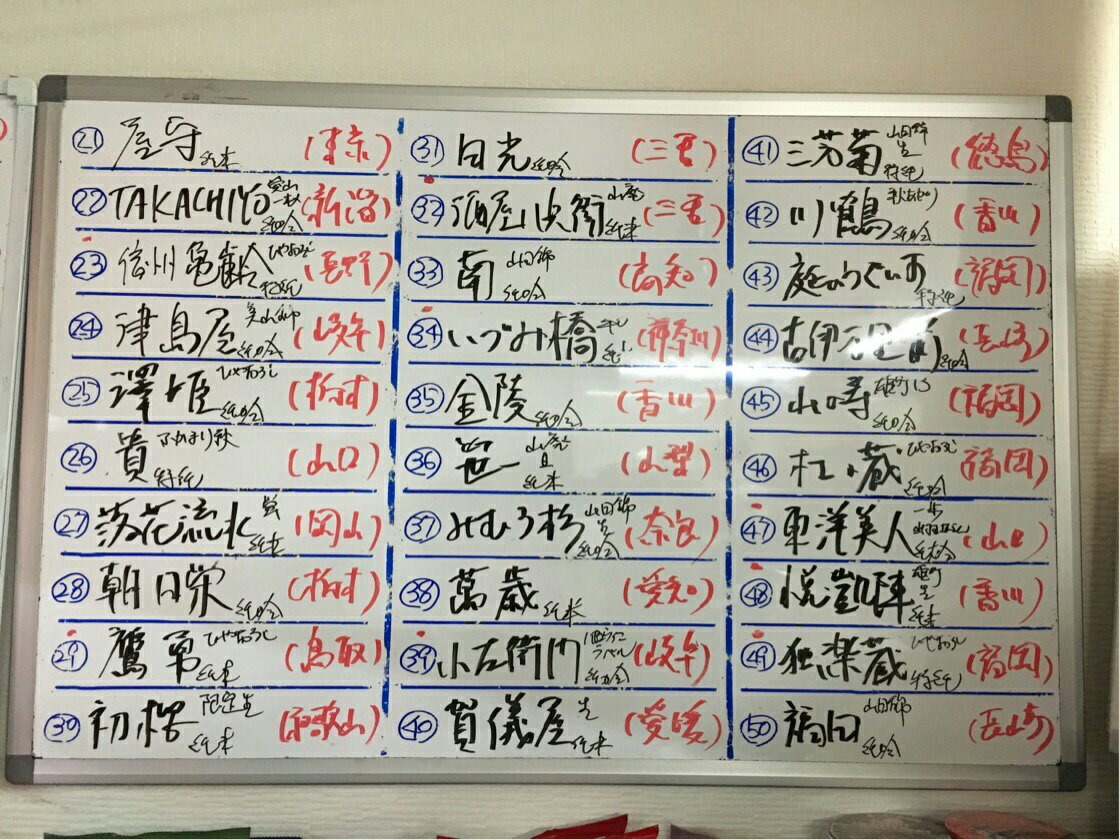 ㉑ 屋守 純米 (東京)
㉒ TAKACHIYO 愛山 一本〆 純吟 (新潟)
㉓ 信州亀齢 ひやおろし 特純 (長野)
㉔ 津島屋 美山錦 純吟 (岐阜)
㉕ 澤姫 ひやおろし 純吟 (栃木)
㉖ 貴 ふかまり秋 特純 (山口)
㉗ 落花流水 純米 (岡山)
㉘ 朝日栄 純吟 (栃木)
㉙ 鷹勇 ひやおろし 純米 (鳥取)
㊴ 初桜 限定生 純米 (和歌山)
㉛ 日光 純吟 (三重)
㉜ 酒屋八兵衛 山廃 純米 (三重)
㉝ 南 山田錦 純吟 (高知)
㉞ いづみ橋 (神奈川)
㉟ 金陵 純吟 (香川)
㊱ 笹一 山廃 純米 (山梨)
㊲ みむろ杉 山田錦 生 純吟 (奈良)
㊳ 萬歳 純米 (愛知)
㊴ 小左衛門 純吟 (岐阜)
㊵ 賀儀屋 生 純米 (愛媛)
㊶ 三芳菊 山田錦 生 特純 (徳島)
㊷ 川鶴 秋あがり 純吟 (香川)
㊸ 庭のうぐいす 特純 (福岡)
㊹ 古伊万里 前 純吟 (長崎)
㊺ 山の寿 雄町 純吟 (福岡)
㊻ 杜の蔵 ひやおろし 純吟 (福岡)
㊼ 東洋美人 一歩 純大吟 (山口)
㊽ 悦凱陣 雄町 生 純米 (香川)
㊾ 独楽蔵 ひやおろし 特純 (福岡)
㊿ 福田 山田錦 純吟 (長崎)